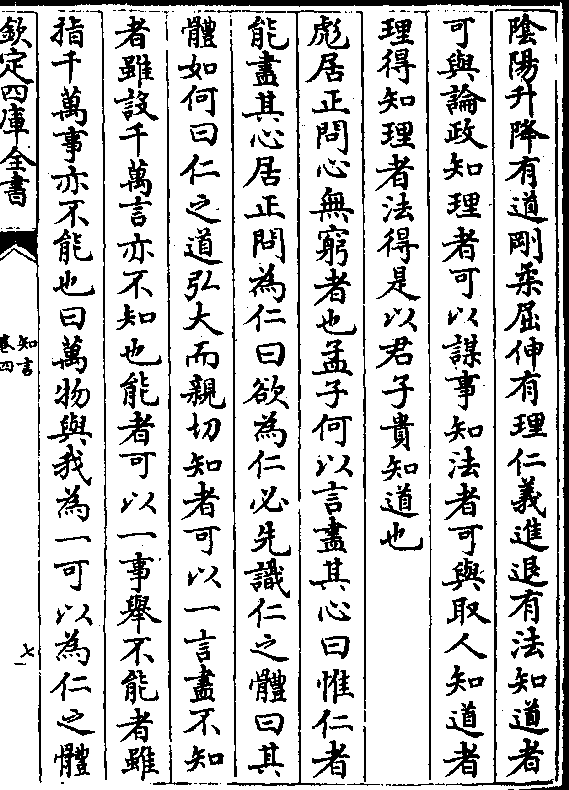 陰陽升降有道剛柔屈伸有理仁義進退有法知道者
可與論政知理者可以謀事知法者可與取人知道者
理得知理者法得是以君子貴知道也
彪居正問心無窮者也孟子何以言盡其心曰惟仁者
能盡其心居正問為仁曰欲為仁必先識仁之體曰其
體如何曰仁之道弘大而親切知者可以一言盡不知
者雖設千萬言亦不知也能者可以一事舉不能者雖
指千萬事亦不能也曰萬物與我為一可以為仁之體
欽定四庫全書
知言
卷四
七